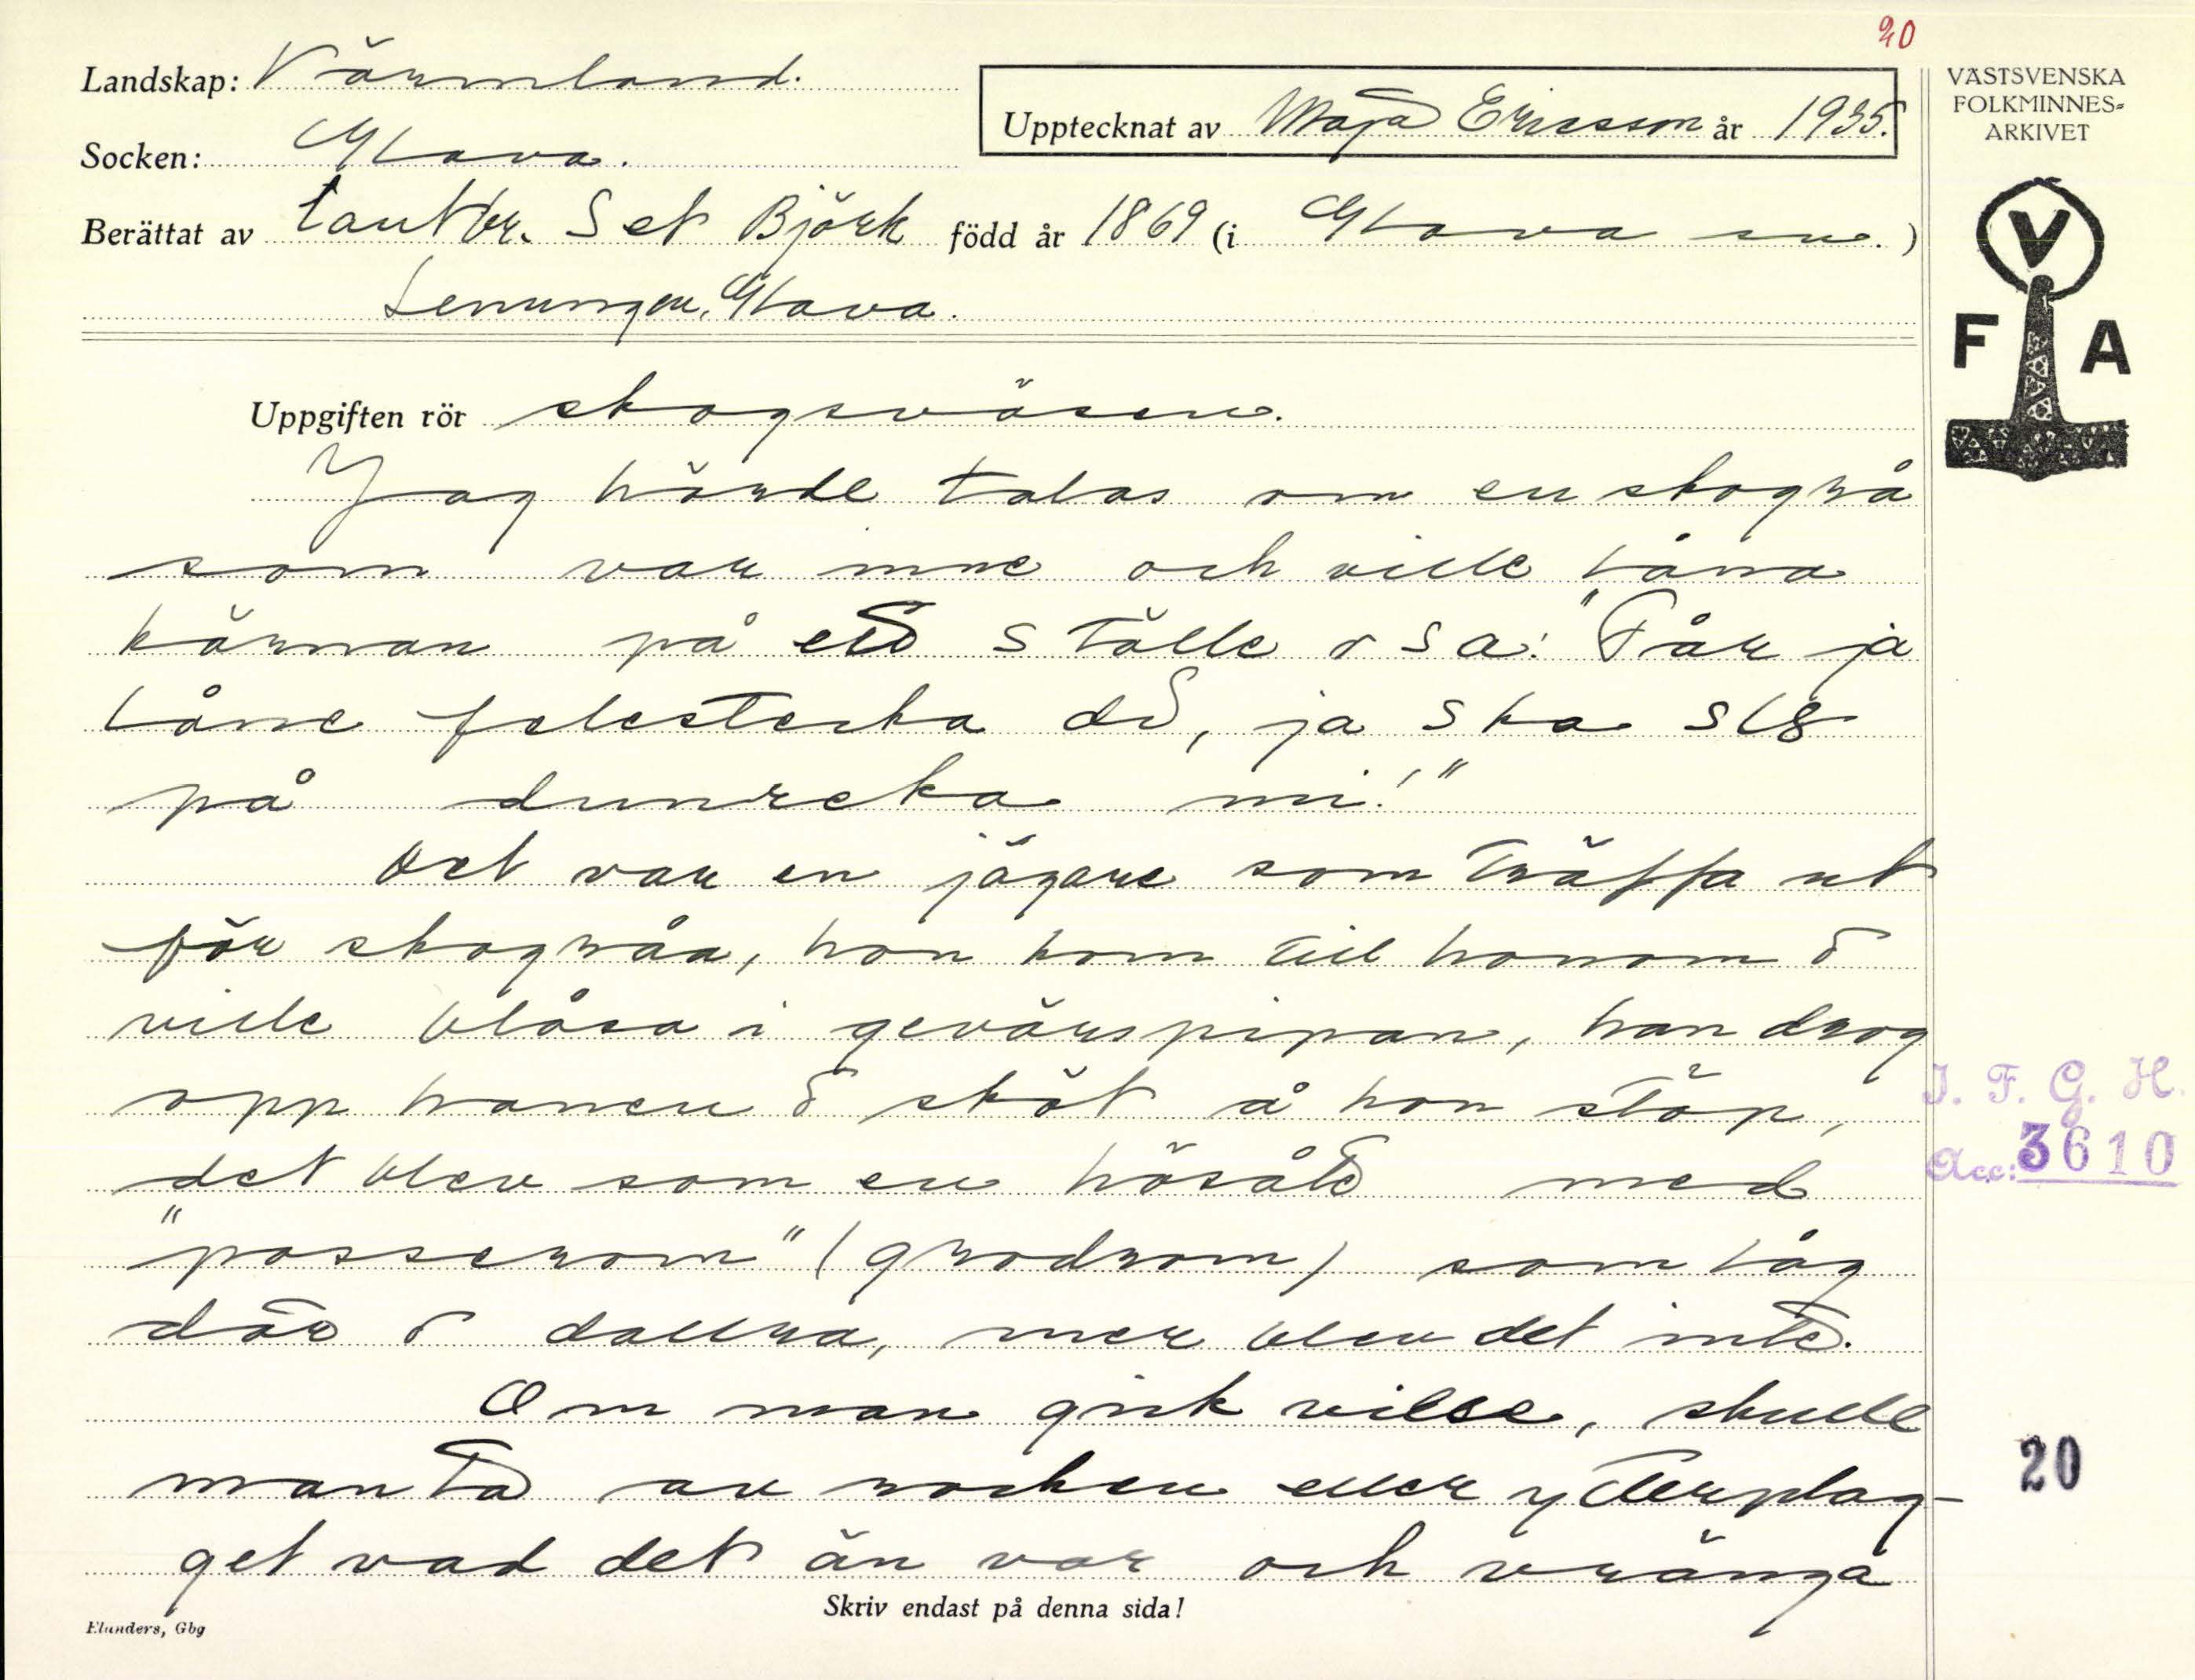 20
Landskap: Värmland.
Upptecknat av Maja Ericsson år 1935.
VÄSTSVENSKA
FOLKMINNES-
ARKIVET
Socken: Glava.
Berättat av Lantbr. Set Björk född år 1869 (i Glava sn.)
Lenungen, Glava.
V
F A
Uppgiften rör skogsväsen.
Jag hörde talas om en skogrå
som var inne och ville låna
kärnan på ett ställe o sa: "Får ja
låne felestecka di, ja ska slå
på dunrecka mi!"
Det var en jägare som träffa ut
för skogråa, hon kom till honom o
ville blåsa i gevärspipan, han drog
opp hanen o sköt å hon stöp,
det blev som en hösåte med
"posserom" (grodrom) som låg
där o dallra, mer blev det inte.
I. F. G. H.
Acc: 3610
Om man gick vilse, skulle
man ta av rocken eller ytterplag-
get vad det än var och vränga
20
Skriv endast på denna sida!
Elanders, Gbg